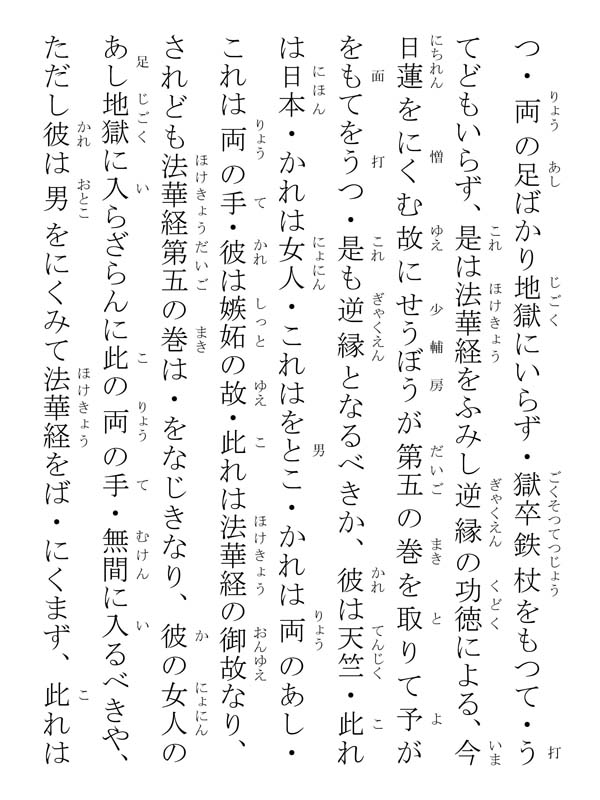 つ・両の足ばかり地獄にいらず・獄卒鉄杖をもつて・う
てどもいらず、是は法華経をふみし逆縁の功徳による、今
日蓮をにくむ故にせうぼうが第五の巻を取りて予が
をもてをうつ・是も逆縁となるべきか、彼は天竺・此れ
は日本・かれは女人・これはをとこ・かれは両のあし・
これは両の手・彼は嫉妬の故・此れは法華経の御故なり、
されども法華経第五の巻は・をなじきなり、彼の女人の
あし地獄に入らざらんに此の両の手・無間に入るべきや、
ただし彼は男をにくみて法華経をば・にくまず、此れは